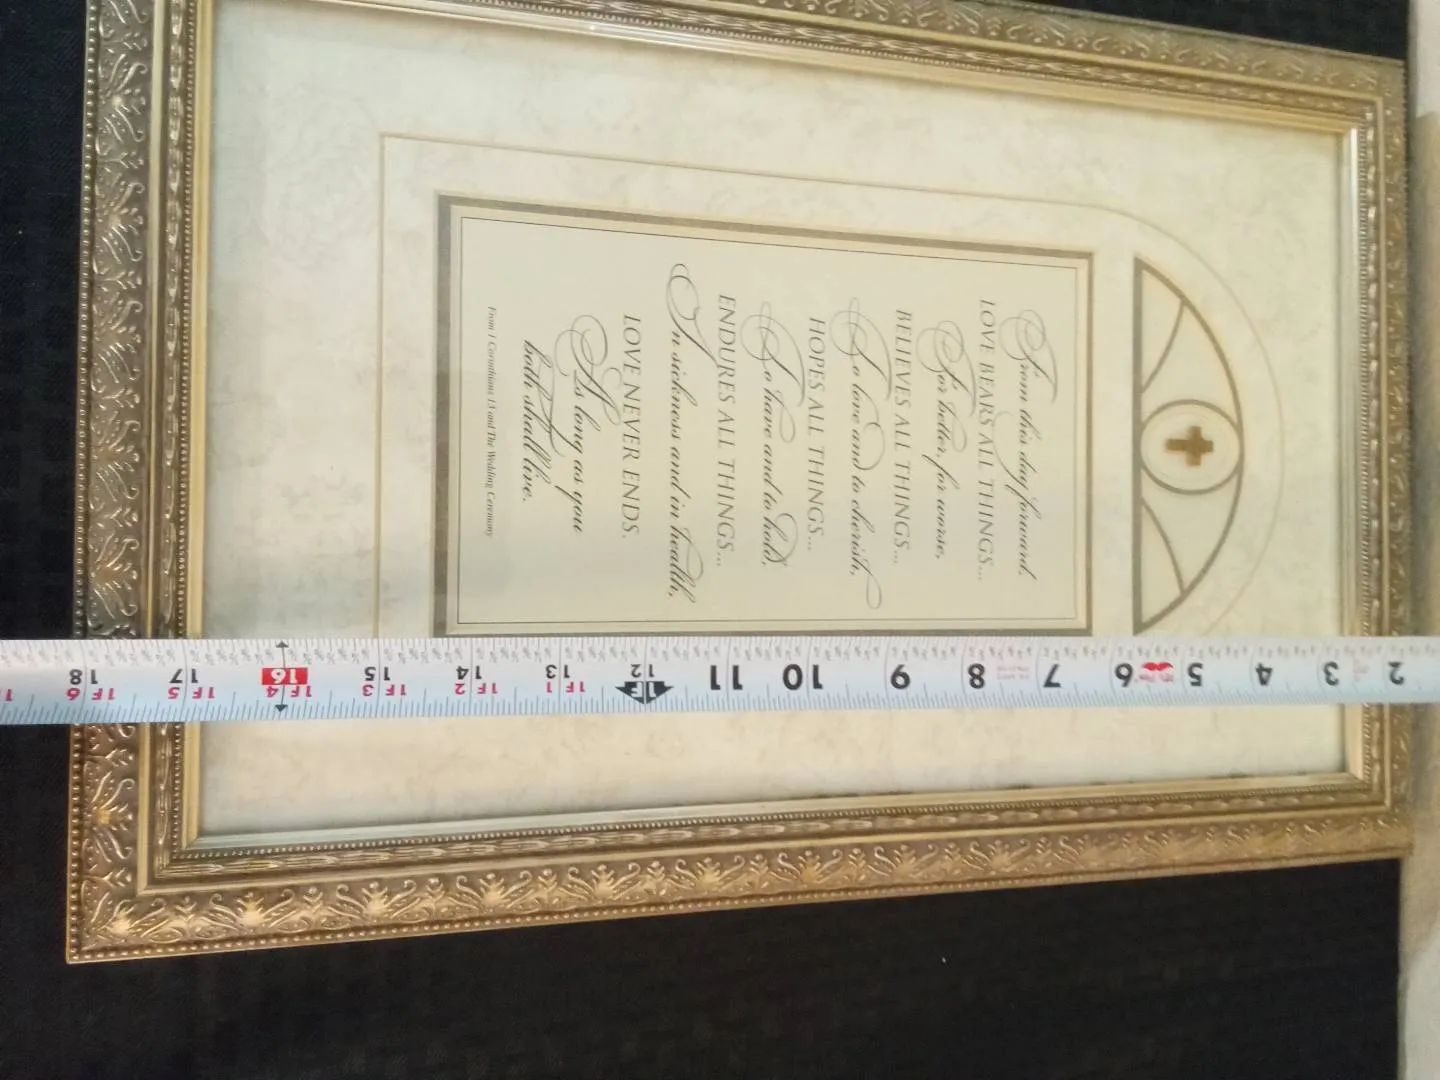 From this day forward,
LOVE BEARS ALL THINGS...
For better, for worse,
BELIEVES ALL THINGS...
To love and to cherish,
HOPES ALL THINGS...
To have and to hold,
ENDURES ALL THINGS...
In sickness and in health,
LOVE NEVER ENDS.
As long as you
both shall live.
From 1 Corinthians 13 and The Wedding Ceremony
2 3 4 5 6 7 8 9 10 11 12 13 14 15 16 17 18
1F 1F1 1F2 1F3 1F4 1F5 1F6